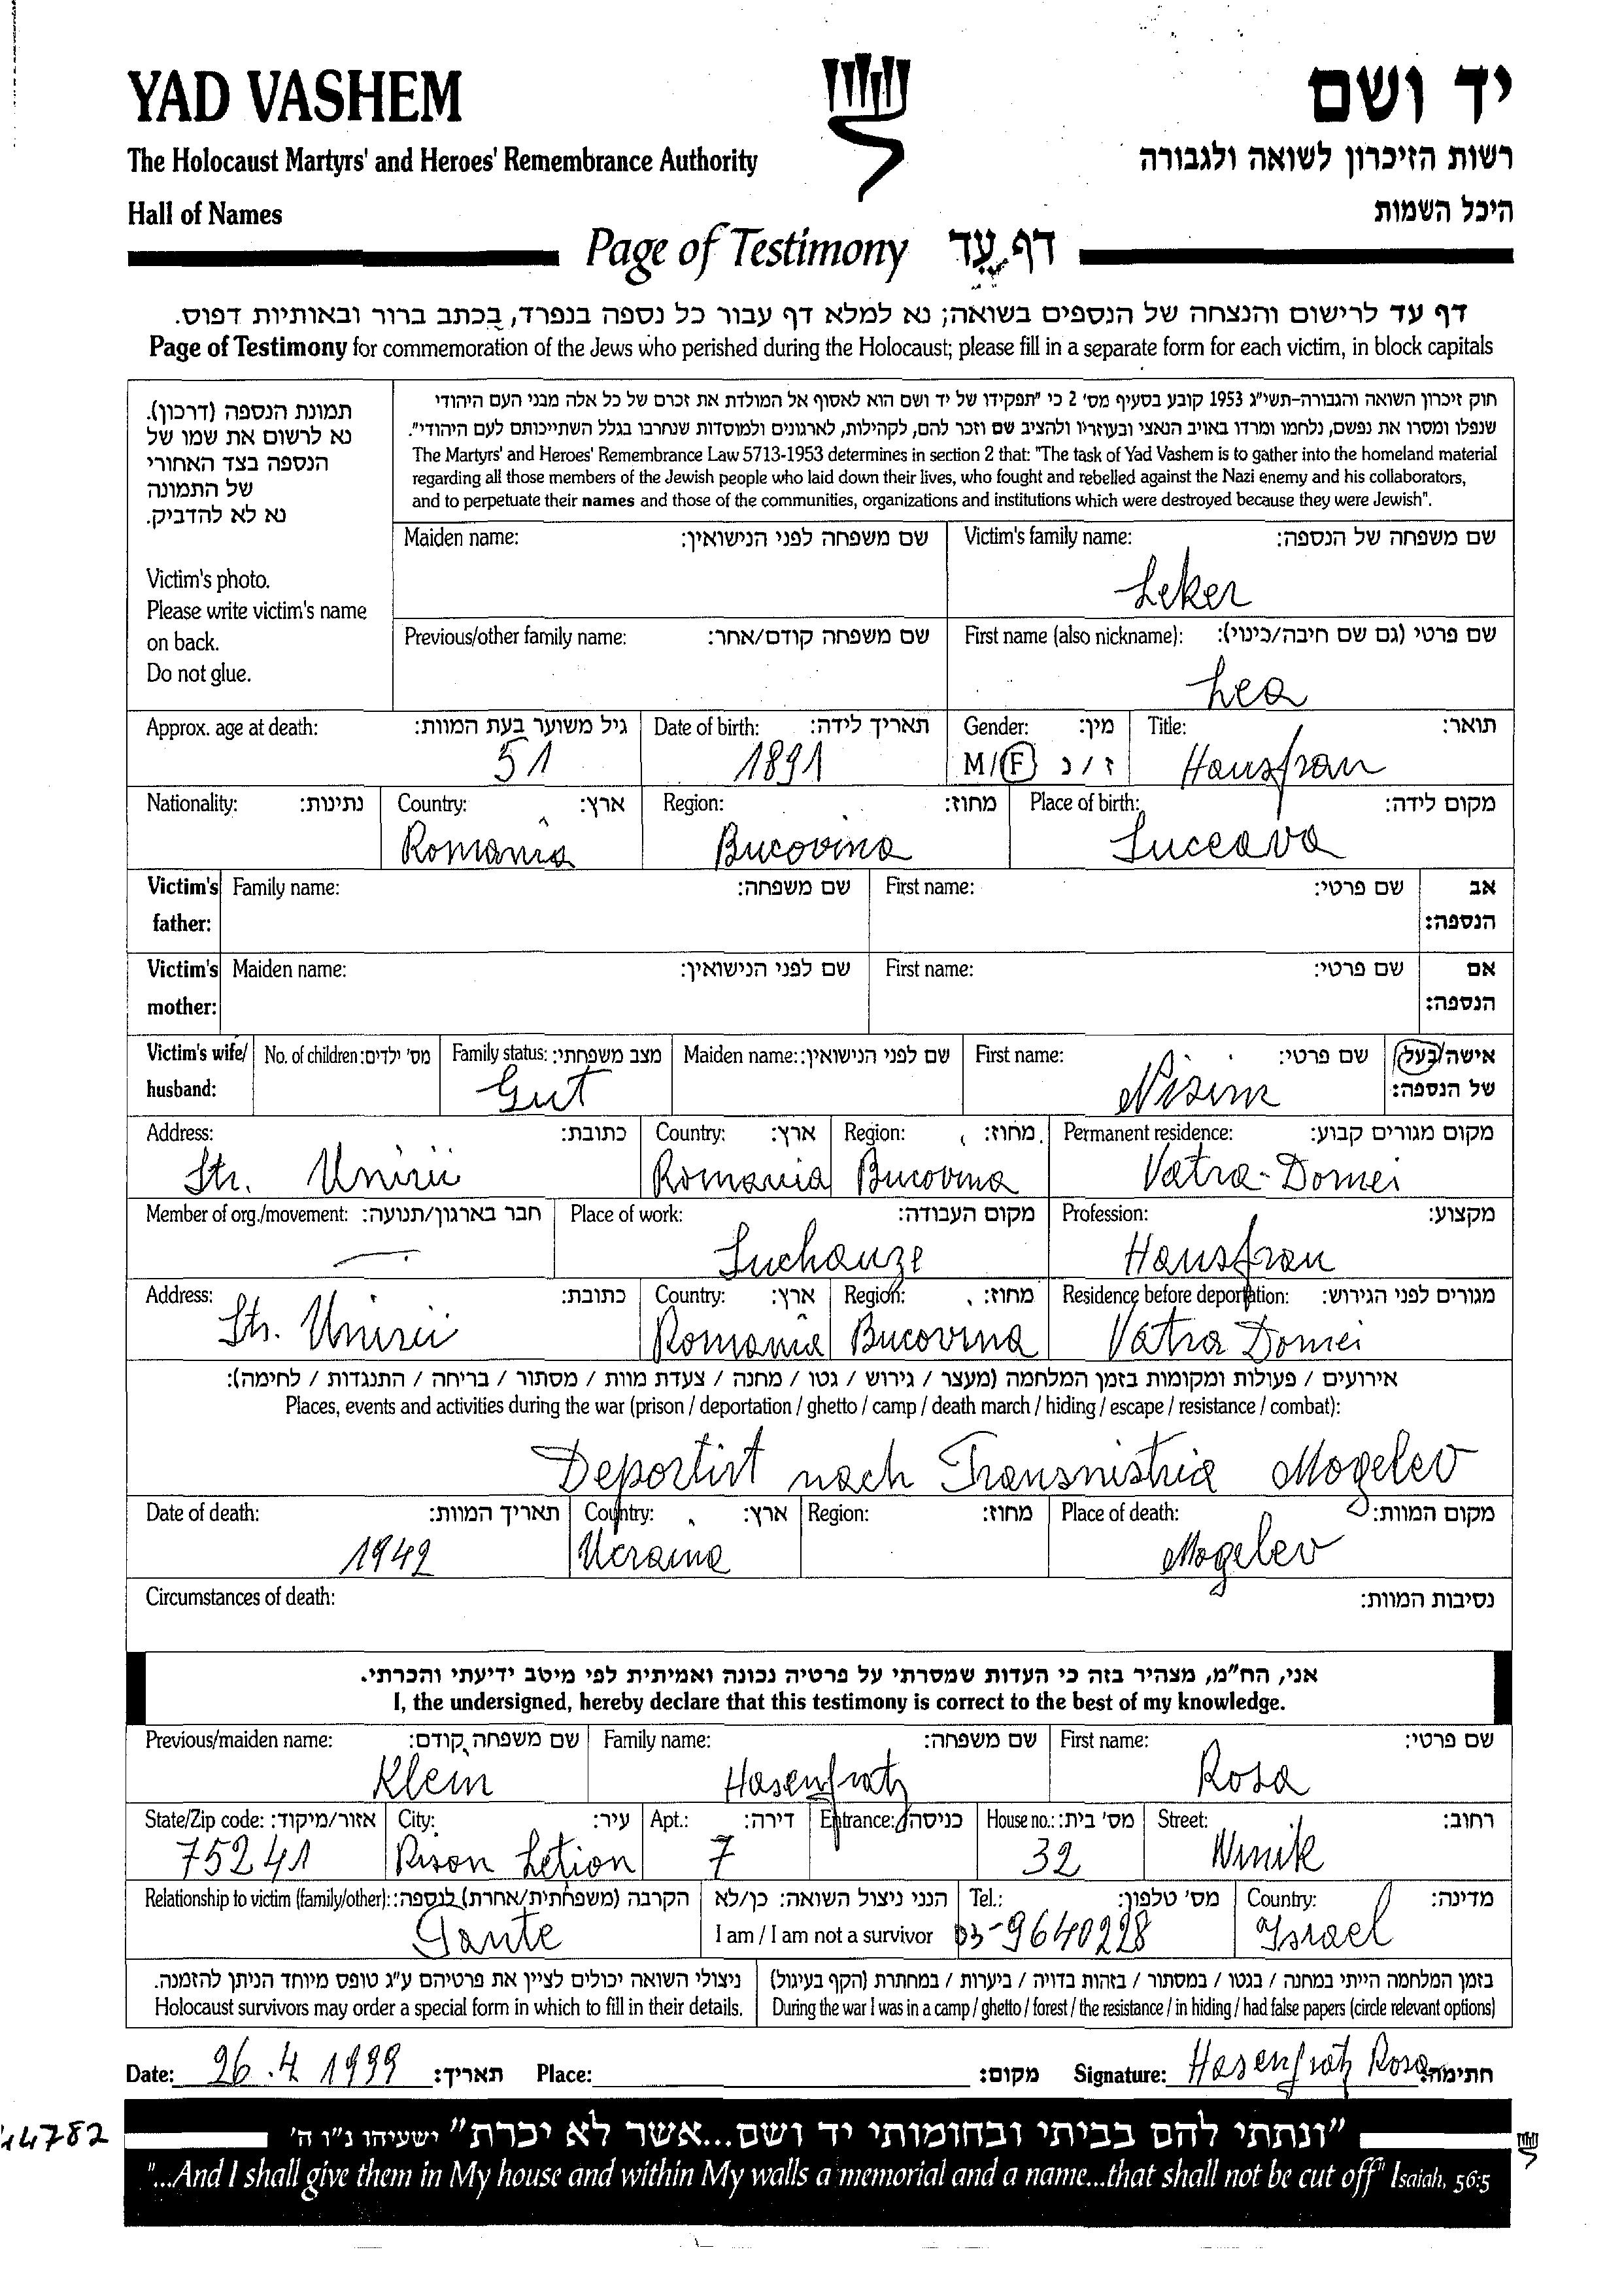 YAD VASHEM
יד ושם
The Holocaust Martyrs' and Heroes' Remembrance Authority
רשות הזיכרון לשואה ולגבורה
Hall of Names
היכל השמות
Page of Testimony דף עד
דף עד לרישום והנצחה של הנספים בשואה; נא למלא דף עבור כל נספה בנפרד, בכתב ברור ובאותיות דפוס.
Page of Testimony for commemoration of the Jews who perished during the Holocaust; please fill in a separate form for each victim, in block capitals
תמונת הנספה (דרכון).
נא לרשום את שמו של
הנספה בצד האחורי
של התמונה
נא לא להדביק.
Victim's photo.
Please write victim's name
on back.
Do not glue.
חוק זיכרון השואה והגבורה-תשי"ג 1953 קובע בסעיף מס' 2 כי "תפקידו של יד ושם הוא לאסוף אל המולדת את זכרם של כל אלה מבני העם היהודי
שנפלו ומסרו את נפשם, נלחמו ומרדו באויב הנאצי ובעוזריו ולהציב שם וזכר להם, לקהילות, לארגונים ולמוסדות שנחרבו בגלל השתייכותם לעם היהודי".
The Martyrs' and Heroes' Remembrance Law 5713-1953 determines in section 2 that: "The task of Yad Vashem is to gather into the homeland material
regarding all those members of the Jewish people who laid down their lives, who fought and rebelled against the Nazi enemy and his collaborators,
and to perpetuate their names and those of the communities, organizations and institutions which were destroyed because they were Jewish".
Maiden name: שם משפחה לפני הנישואין: Victim's family name: שם משפחה של הנספה:
Leker
Previous/other family name: שם משפחה קודם/אחר: First name (also nickname): שם פרטי (גם שם חיבה/כינוי):
Lea
Approx. age at death: גיל משוער בעת המוות: Date of birth: תאריך לידה: Gender: מין: Title: תואר:
51 1891 M/F ז/נ Hausfrau
Nationality: נתינות: Country: ארץ: Region: מחוז: Place of birth: מקום לידה:
Romania Bucovina Suceava
Victim's father: Family name: שם משפחה: First name: שם פרטי: אב הנספה:
Victim's mother: Maiden name: שם לפני הנישואין: First name: שם פרטי: אם הנספה:
Victim's wife/ husband: No. of children: מס' ילדים: Family status: מצב משפחתי: Maiden name: שם לפני הנישואין: First name: שם פרטי: אישה/בעל של הנספה:
Gut Nisim
Address: כתובת: Country: ארץ: Region: מחוז: Permanent residence: מקום מגורים קבוע:
Str. Unirii Romania Bucovina Vatra-Dornei
Member of org./movement: חבר בארגון/תנועה: Place of work: מקום העבודה: Profession: מקצוע:
— Suchauze Hausfrau
Address: כתובת: Country: ארץ: Region: מחוז: Residence before deportation: מגורים לפני הגירוש:
Str. Unirii Romania Bucovina Vatra Dornei
אירועים / פעולות ומקומות בזמן המלחמה (מעצר / גירוש / גטו / מחנה / צעדת מוות / מסתור / בריחה / התנגדות / לחימה):
Places, events and activities during the war (prison / deportation / ghetto / camp / death march / hiding / escape / resistance / combat):
Deportirt nach Transnistria Mogelev
Date of death: תאריך המוות: Country: ארץ: Region: מחוז: Place of death: מקום המוות:
1942 Ucraina Mogelev
Circumstances of death: נסיבות המוות:
אני, הח"מ, מצהיר בזה כי העדות שמסרתי על פרטיה נכונה ואמיתית לפי מיטב ידיעתי והכרתי.
I, the undersigned, hereby declare that this testimony is correct to the best of my knowledge.
Previous/maiden name: שם משפחה קודם: Family name: שם משפחה: First name: שם פרטי:
Klein Hasenfratz Rosa
State/Zip code: אזור/מיקוד: City: עיר: Apt.: דירה: Entrance: כניסה: House no.: מס' בית: Street: רחוב:
75241 Rison Letion 7 32 Winik
Relationship to victim (family/other): הקרבה (משפחתית/אחרת) לנספה: הנני ניצול השואה: כן/לא Tel.: מס' טלפון: Country: מדינה:
Tante I am / I am not a survivor 03-9640228 Israel
ניצולי השואה יכולים לציין את פרטיהם ע"ג טופס מיוחד הניתן להזמנה. בזמן המלחמה הייתי במחנה / בגטו / במסתור / בזהות בדויה / ביערות / במחתרת (הקף בעיגול)
Holocaust survivors may order a special form in which to fill in their details. During the war I was in a camp / ghetto / forest / the resistance / in hiding / had false papers (circle relevant options)
Date: 26.4 1999 תאריך: Place: מקום: Signature: Hasenfratz Rosa חתימה:
44782
"ונתתי להם בביתי ובחומותי יד ושם...אשר לא יכרת" ישעיהו נ"ו ה'
"...And I shall give them in My house and within My walls a memorial and a name...that shall not be cut off" Isaiah, 56:5